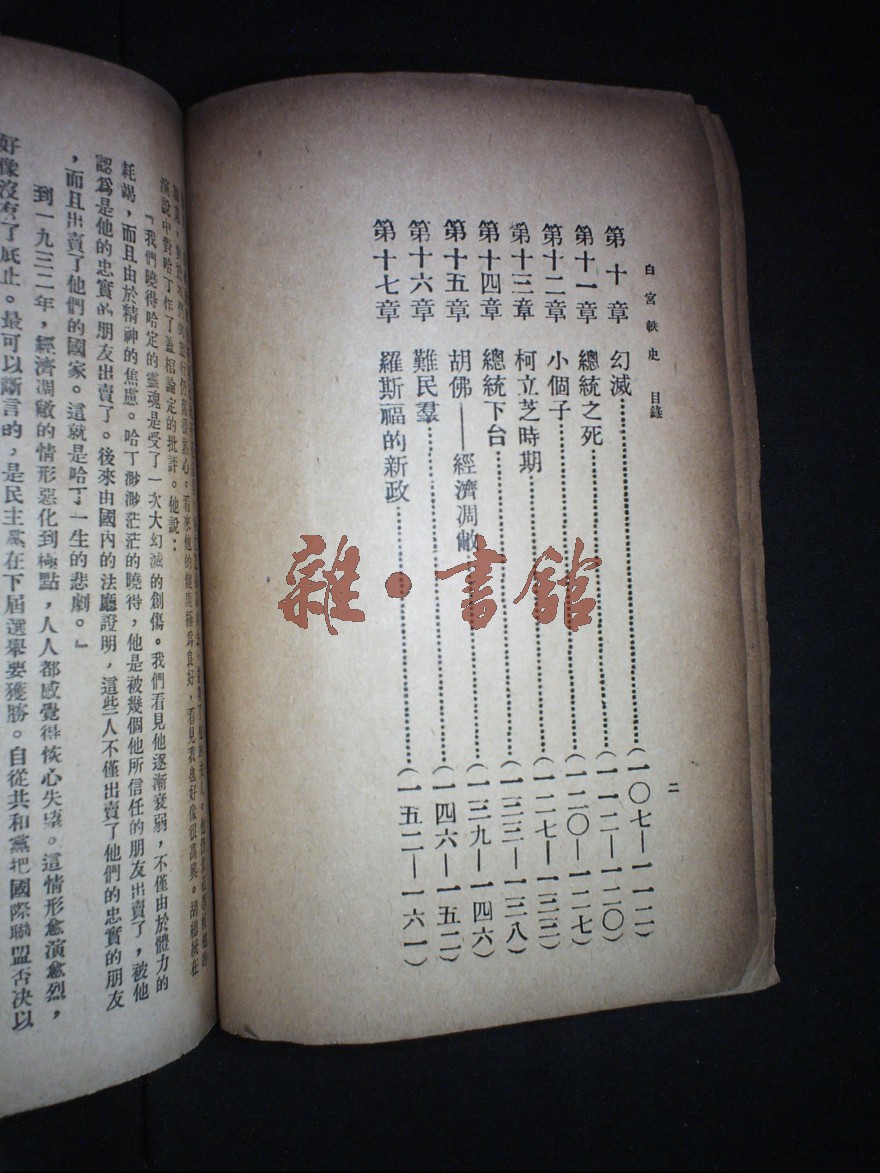 白宮軼史 目錄
二
第十章 幻滅……(一〇七—一一二)
第十一章 總統之死……(一一二—一二〇)
第十二章 小個子……(一二〇—一二七)
第十三章 柯立芝時期……(一二七—一三三)
第十四章 總統下台……(一三三—一三八)
第十五章 胡佛——經濟凋敝……(一三九—一四六)
第十六章 難民羣……(一四六—一五二)
第十七章 羅斯福的新政……(一五二—一六一)
雜·書館
看來他的健康極爲良好,看見我也好像很高興。胡總統在
演說中對哈丁作了蓋棺論定的批評。他說:
『我們曉得哈定的靈魂是受了一次大幻滅的創傷。我們看見他逐漸衰弱,不僅由於體力的
耗竭,而且由於精神的焦慮。哈丁渺渺茫茫的曉得,他是被幾個他所信任的朋友出賣了,被他
認爲是他的忠實的朋友出賣了。後來由國內的法廳證明,這些人不僅出賣了他們的忠實的朋友
,而且出賣了他們的國家。這就是哈丁一生的悲劇。』
到一九三二年,經濟凋敝的情形惡化到極點,人人都感覺得恢心失望。這情形愈演愈烈,
好像沒有了底止。最可以斷言的,是民主黨在下屆選舉要獲勝。自從共和黨把國際聯盟否決以